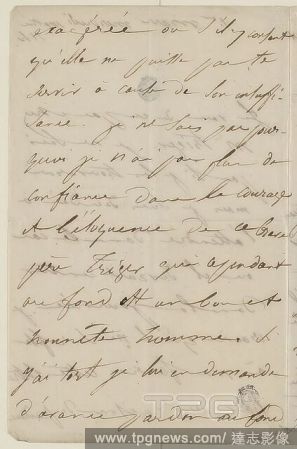 exagérée ou s'il y consent
qu'elle ne puisse pas te
servir à cause de son insuffi-
sance. je ne sais pas pour-
quoi je n'ai pas plus de
confiance dans le courage
et l'éloquence de ce brave
père Triger qui cependant
au fond est un bon et
honnête homme. Si
j'ai tort je lui en demande
d'avance pardon au fond
TPG
www.tpgnews.com/達志影像